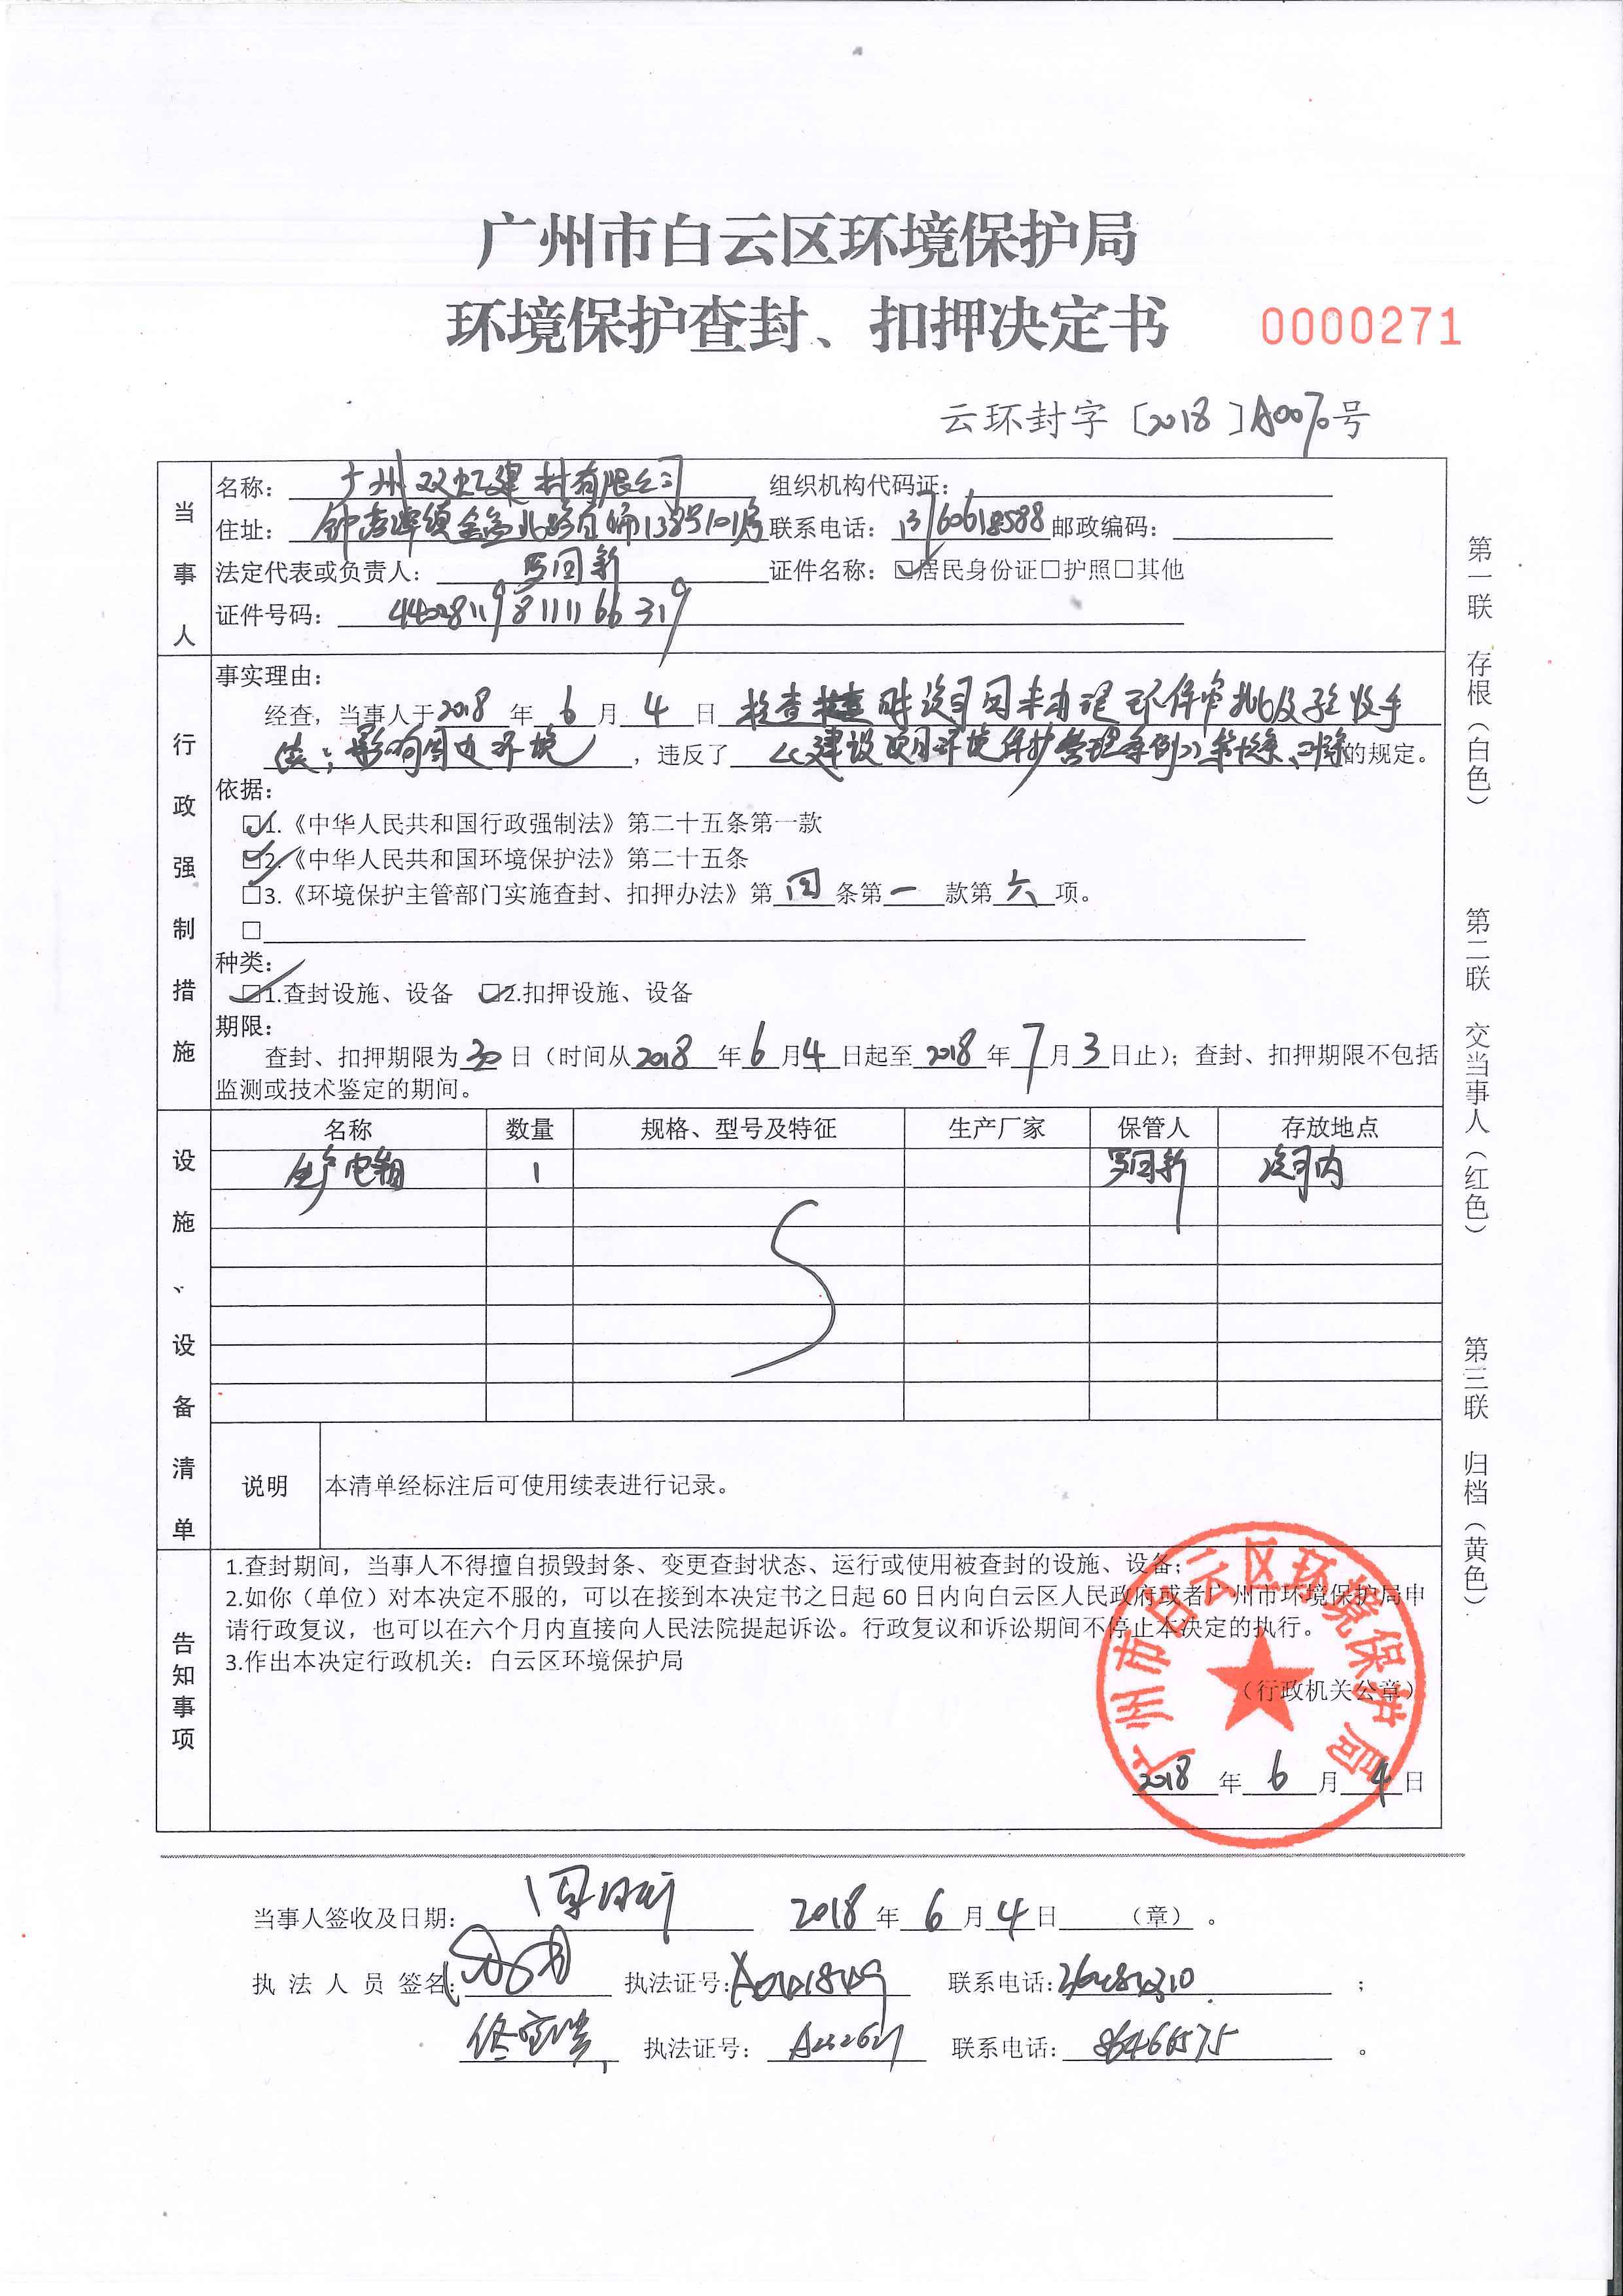 广州市白云区环境保护局
环境保护查封、扣押决定书 0000271
云环封字〔2018〕A0070号
当事人
名称：广州双虹建材有限公司 组织机构代码证：
住址：钟落潭镇金盆北路自编138号101房 联系电话：13760618588 邮政编码：
法定代表或负责人：罗回新 证件名称：☑居民身份证□护照□其他
证件号码：440281198111166319
行政强制措施
事实理由：
经查，当事人于2018年6月4日检查时该司因未办理环保审批及验收手
续；影响周边环境，违反了《建设项目环境保护管理条例》的规定。
依据：
☑1.《中华人民共和国行政强制法》第二十五条第一款
☑2.《中华人民共和国环境保护法》第二十五条
□3.《环境保护主管部门实施查封、扣押办法》第四条第一款第六项。
□
种类：
☑1.查封设施、设备 □2.扣押设施、设备
期限：
查封、扣押期限为30日（时间从2018年6月4日起至2018年7月3日止）；查封、扣押期限不包括
监测或技术鉴定的期间。
设施、设备清单
名称 数量 规格、型号及特征 生产厂家 保管人 存放地点
生产电箱 1 罗回新 该司内
说明 本清单经标注后可使用续表进行记录。
告知事项
1.查封期间，当事人不得擅自损毁封条、变更查封状态、运行或使用被查封的设施、设备；
2.如你（单位）对本决定不服的，可以在接到本决定书之日起 60 日内向白云区人民政府或者广州市环境保护局申
请行政复议，也可以在六个月内直接向人民法院提起诉讼。行政复议和诉讼期间不停止本决定的执行。
3.作出本决定行政机关：白云区环境保护局
（行政机关公章）
广州市白云区环境保护局
2018年6月4日
当事人签收及日期： 2018年6月4日 （章）。
执法人员签名： 执法证号： 联系电话： ；
执法证号：A232621 联系电话：86466575 。
第一联 存根（白色）
第二联 交当事人（红色）
第三联 归档（黄色）